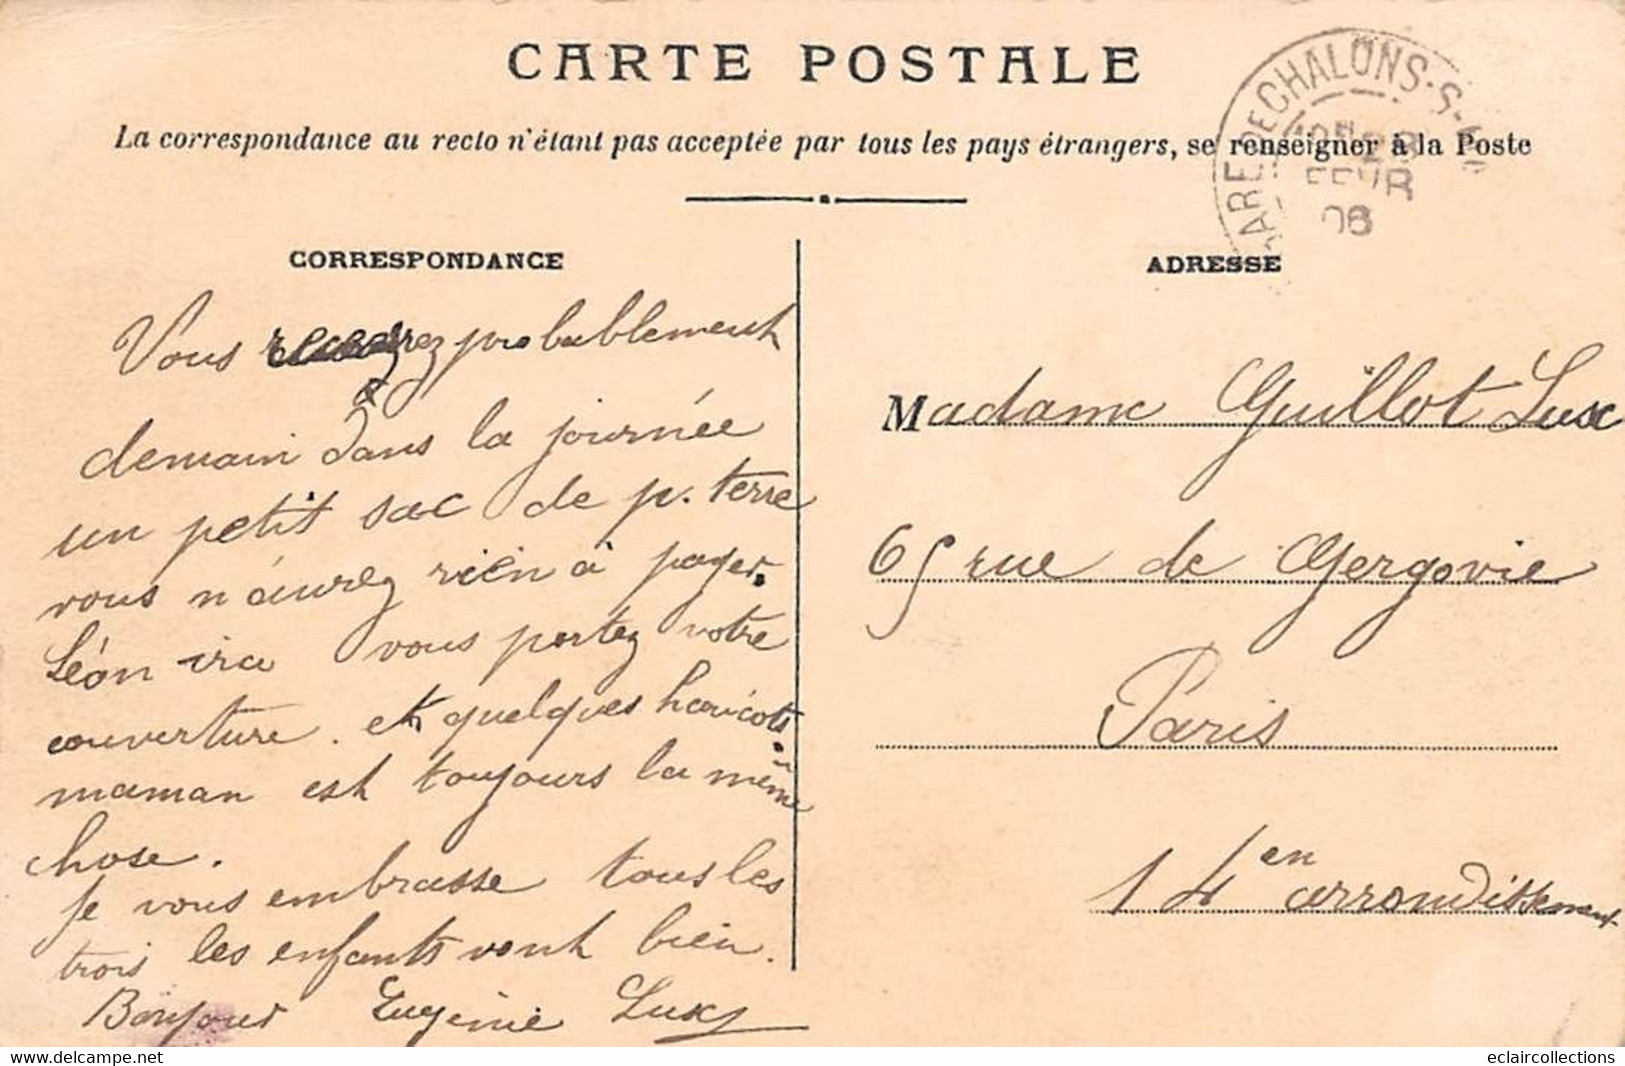 CARTE POSTALE
La correspondance au recto n'étant pas acceptée par tous les pays étrangers, se renseigner à la Poste
GARE DE CHALONS-S-M
FEVR
08
CORRESPONDANCE
Vous recevrez probablement
demain dans la journée
un petit sac de p. terre
vous n'aurez rien à payer.
Léon ira vous portez votre
couverture. et quelques haricots.
maman est toujours la même
chose.
Je vous embrasse tous les
trois les enfants vont bien.
Bonjour Eugénie Lux
ADRESSE
Madame Guillot Lux
65 rue de Gergovie
Paris
14en arrondissement
eclaircollections